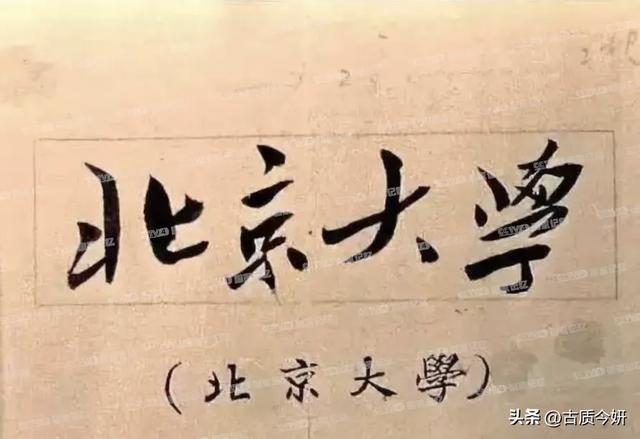 北京大學
（北京大學）
头条 @古质今妍